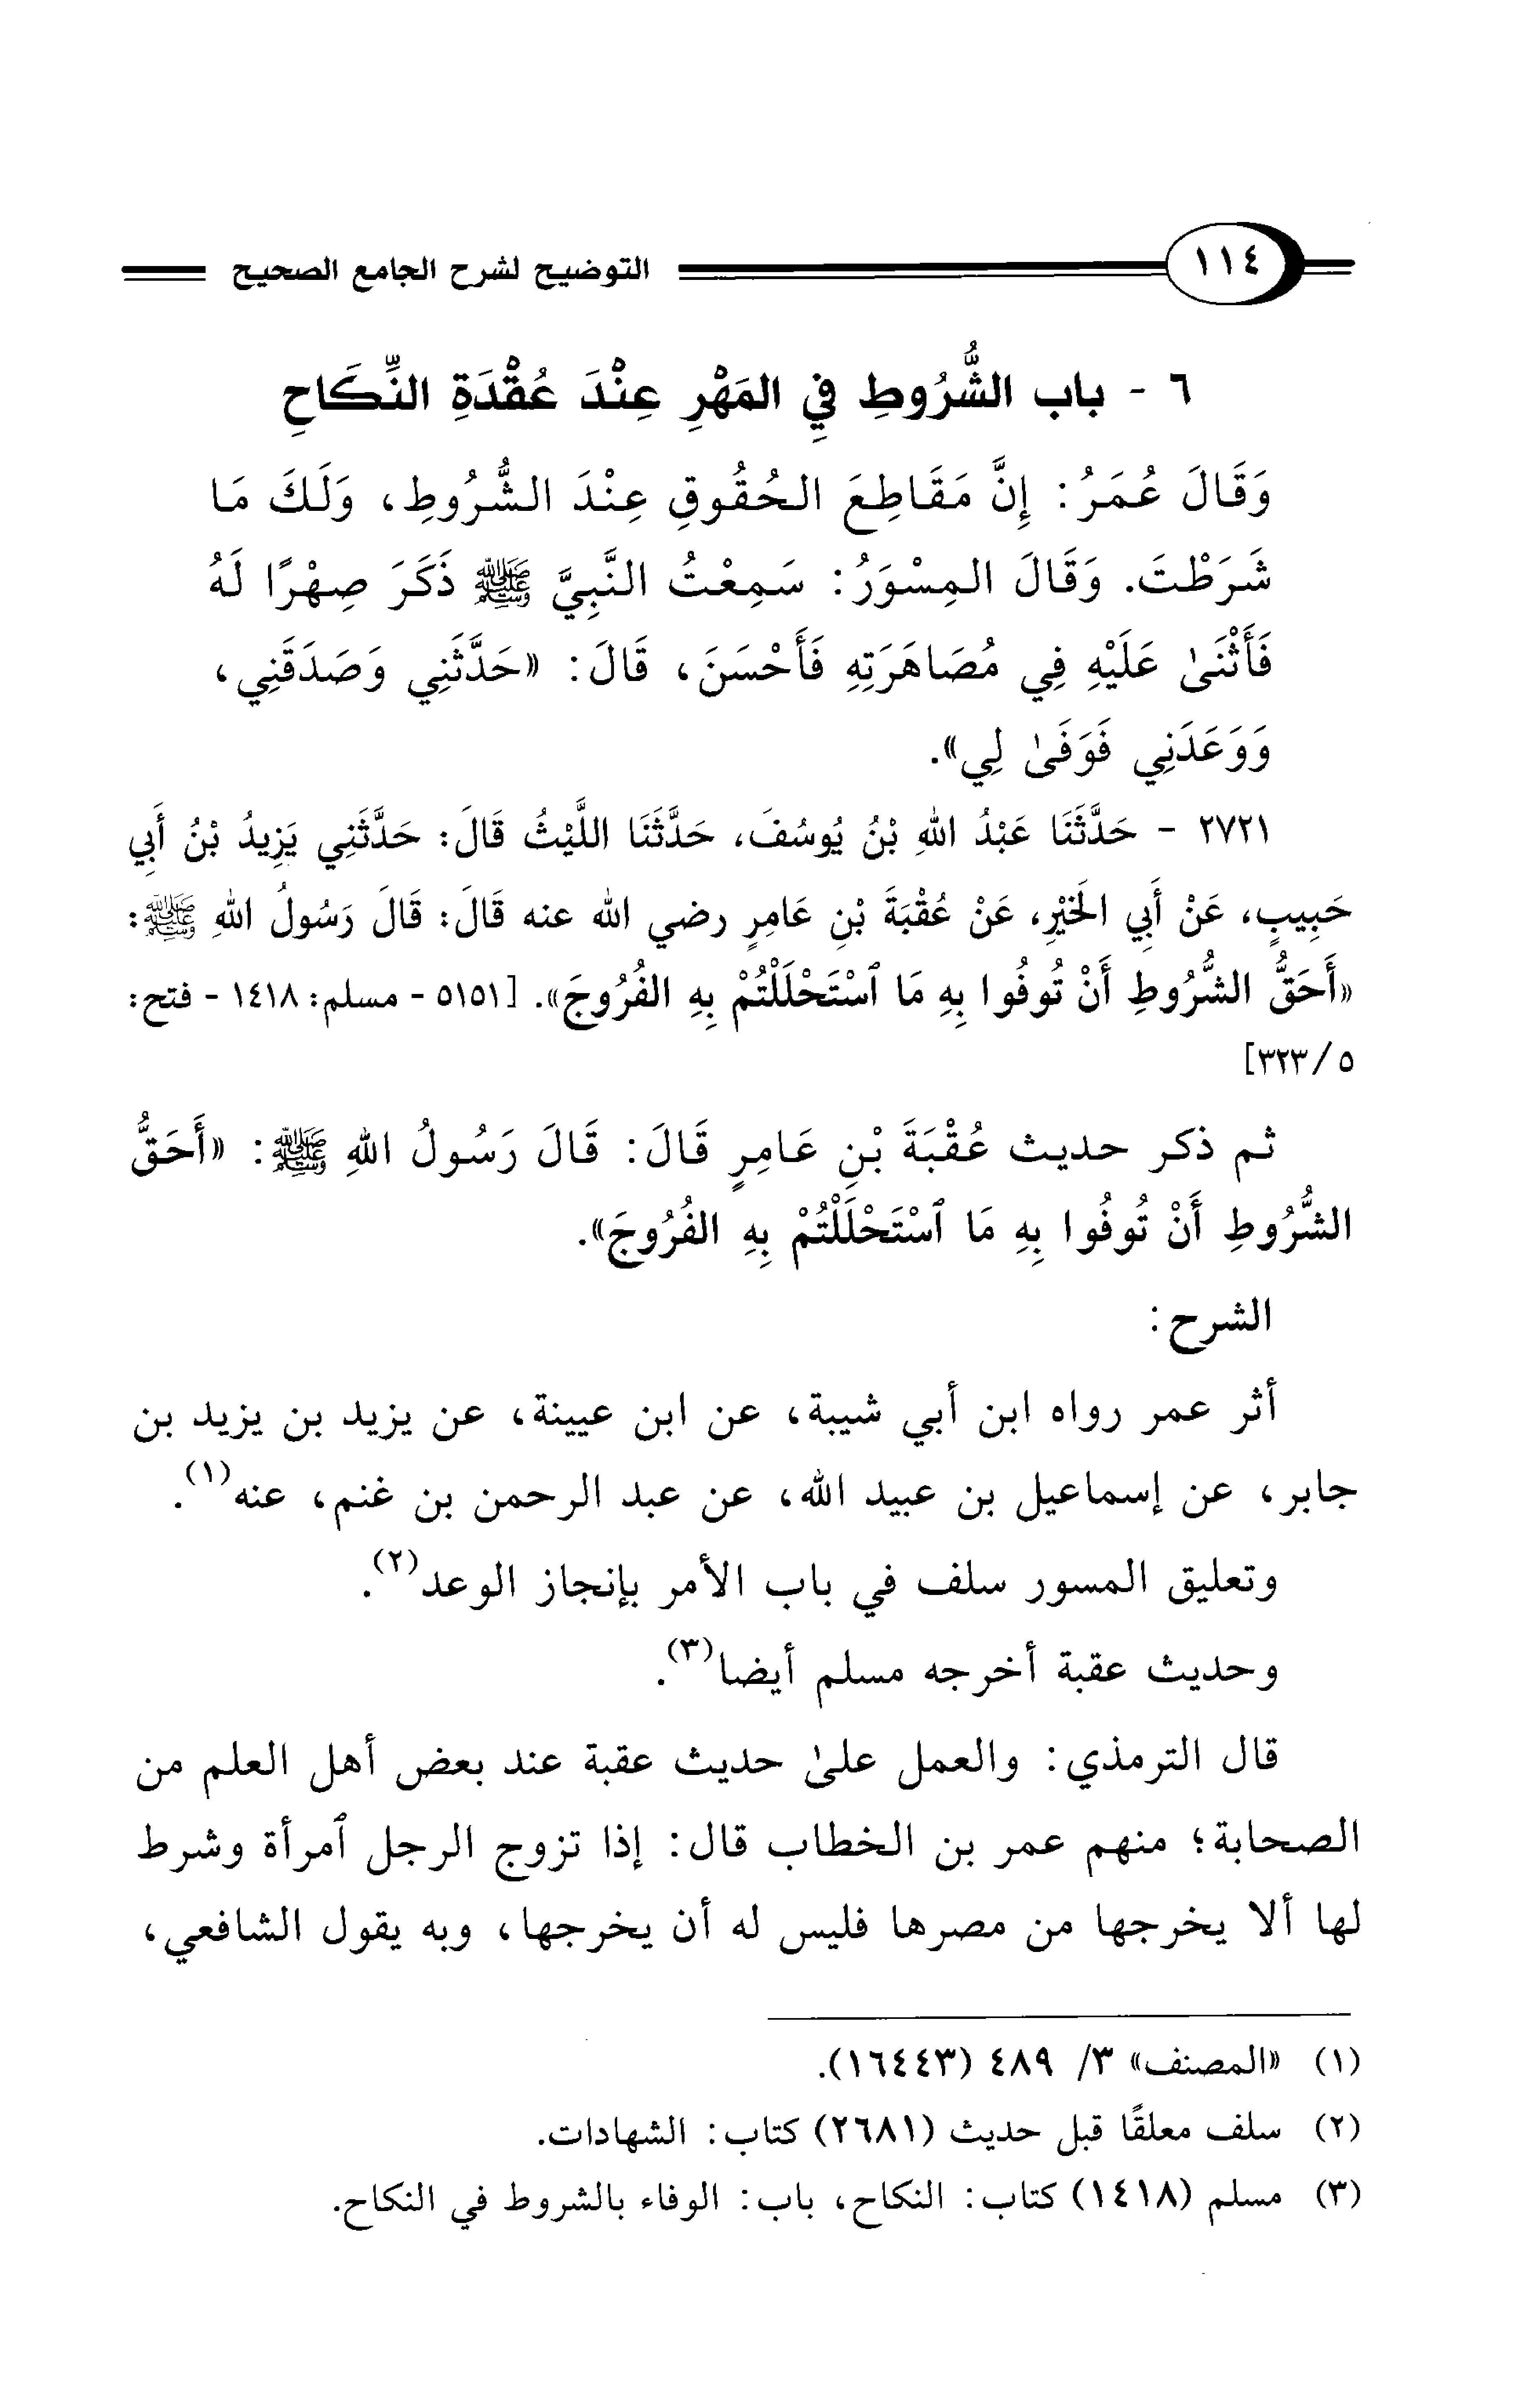 ١١٤
التوضيح لشرح الجامع الصحيح
٦ - باب الشُّرُوطِ فِي المَهْرِ عِنْدَ عُقْدَةِ النِّكَاحِ
وَقَالَ عُمَرُ: إِنَّ مَقَاطِعَ الحُقُوقِ عِنْدَ الشُّرُوطِ، وَلَكَ مَا
شَرَطْتَ. وَقَالَ المِسْوَرُ: سَمِعْتُ النَّبِيَّ ﷺ ذَكَرَ صِهْرًا لَهُ
فَأَثْنَىٰ عَلَيْهِ فِي مُصَاهَرَتِهِ فَأَحْسَنَ، قَالَ: «حَدَّثَنِي وَصَدَقَنِي،
وَوَعَدَنِي فَوَفَىٰ لِي».
٢٧٢١ - حَدَّثَنَا عَبْدُ اللهِ بْنُ يُوسُفَ، حَدَّثَنَا اللَّيْثُ قَالَ: حَدَّثَنِي يَزِيدُ بْنُ أَبِي
حَبِيبٍ، عَنْ أَبِي الخَيْرِ، عَنْ عُقْبَةَ بْنِ عَامِرٍ رضي الله عنه قَالَ: قَالَ رَسُولُ اللهِ ﷺ:
«أَحَقُّ الشُّرُوطِ أَنْ تُوفُوا بِهِ مَا ٱسْتَحْلَلْتُمْ بِهِ الفُرُوجَ». [٥١٥١ - مسلم: ١٤١٨ - فتح:
٥/ ٣٢٣]
ثم ذكر حديث عُقْبَةَ بْنِ عَامِرٍ قَالَ: قَالَ رَسُولُ اللهِ ﷺ: «أَحَقُّ
الشُّرُوطِ أَنْ تُوفُوا بِهِ مَا ٱسْتَحْلَلْتُمْ بِهِ الفُرُوجَ».
الشرح:
أثر عمر رواه ابن أبي شيبة، عن ابن عيينة، عن يزيد بن يزيد بن
جابر، عن إسماعيل بن عبيد الله، عن عبد الرحمن بن غنم، عنه(١).
وتعليق المسور سلف في باب الأمر بإنجاز الوعد(٢).
وحديث عقبة أخرجه مسلم أيضا(٣).
قال الترمذي: والعمل علىٰ حديث عقبة عند بعض أهل العلم من
الصحابة؛ منهم عمر بن الخطاب قال: إذا تزوج الرجل ٱمرأة وشرط
لها ألا يخرجها من مصرها فليس له أن يخرجها، وبه يقول الشافعي،
(١) «المصنف» ٣/ ٤٨٩ (١٦٤٤٣).
(٢) سلف معلقًا قبل حديث (٢٦٨١) كتاب: الشهادات.
(٣) مسلم (١٤١٨) كتاب: النكاح، باب: الوفاء بالشروط في النكاح.